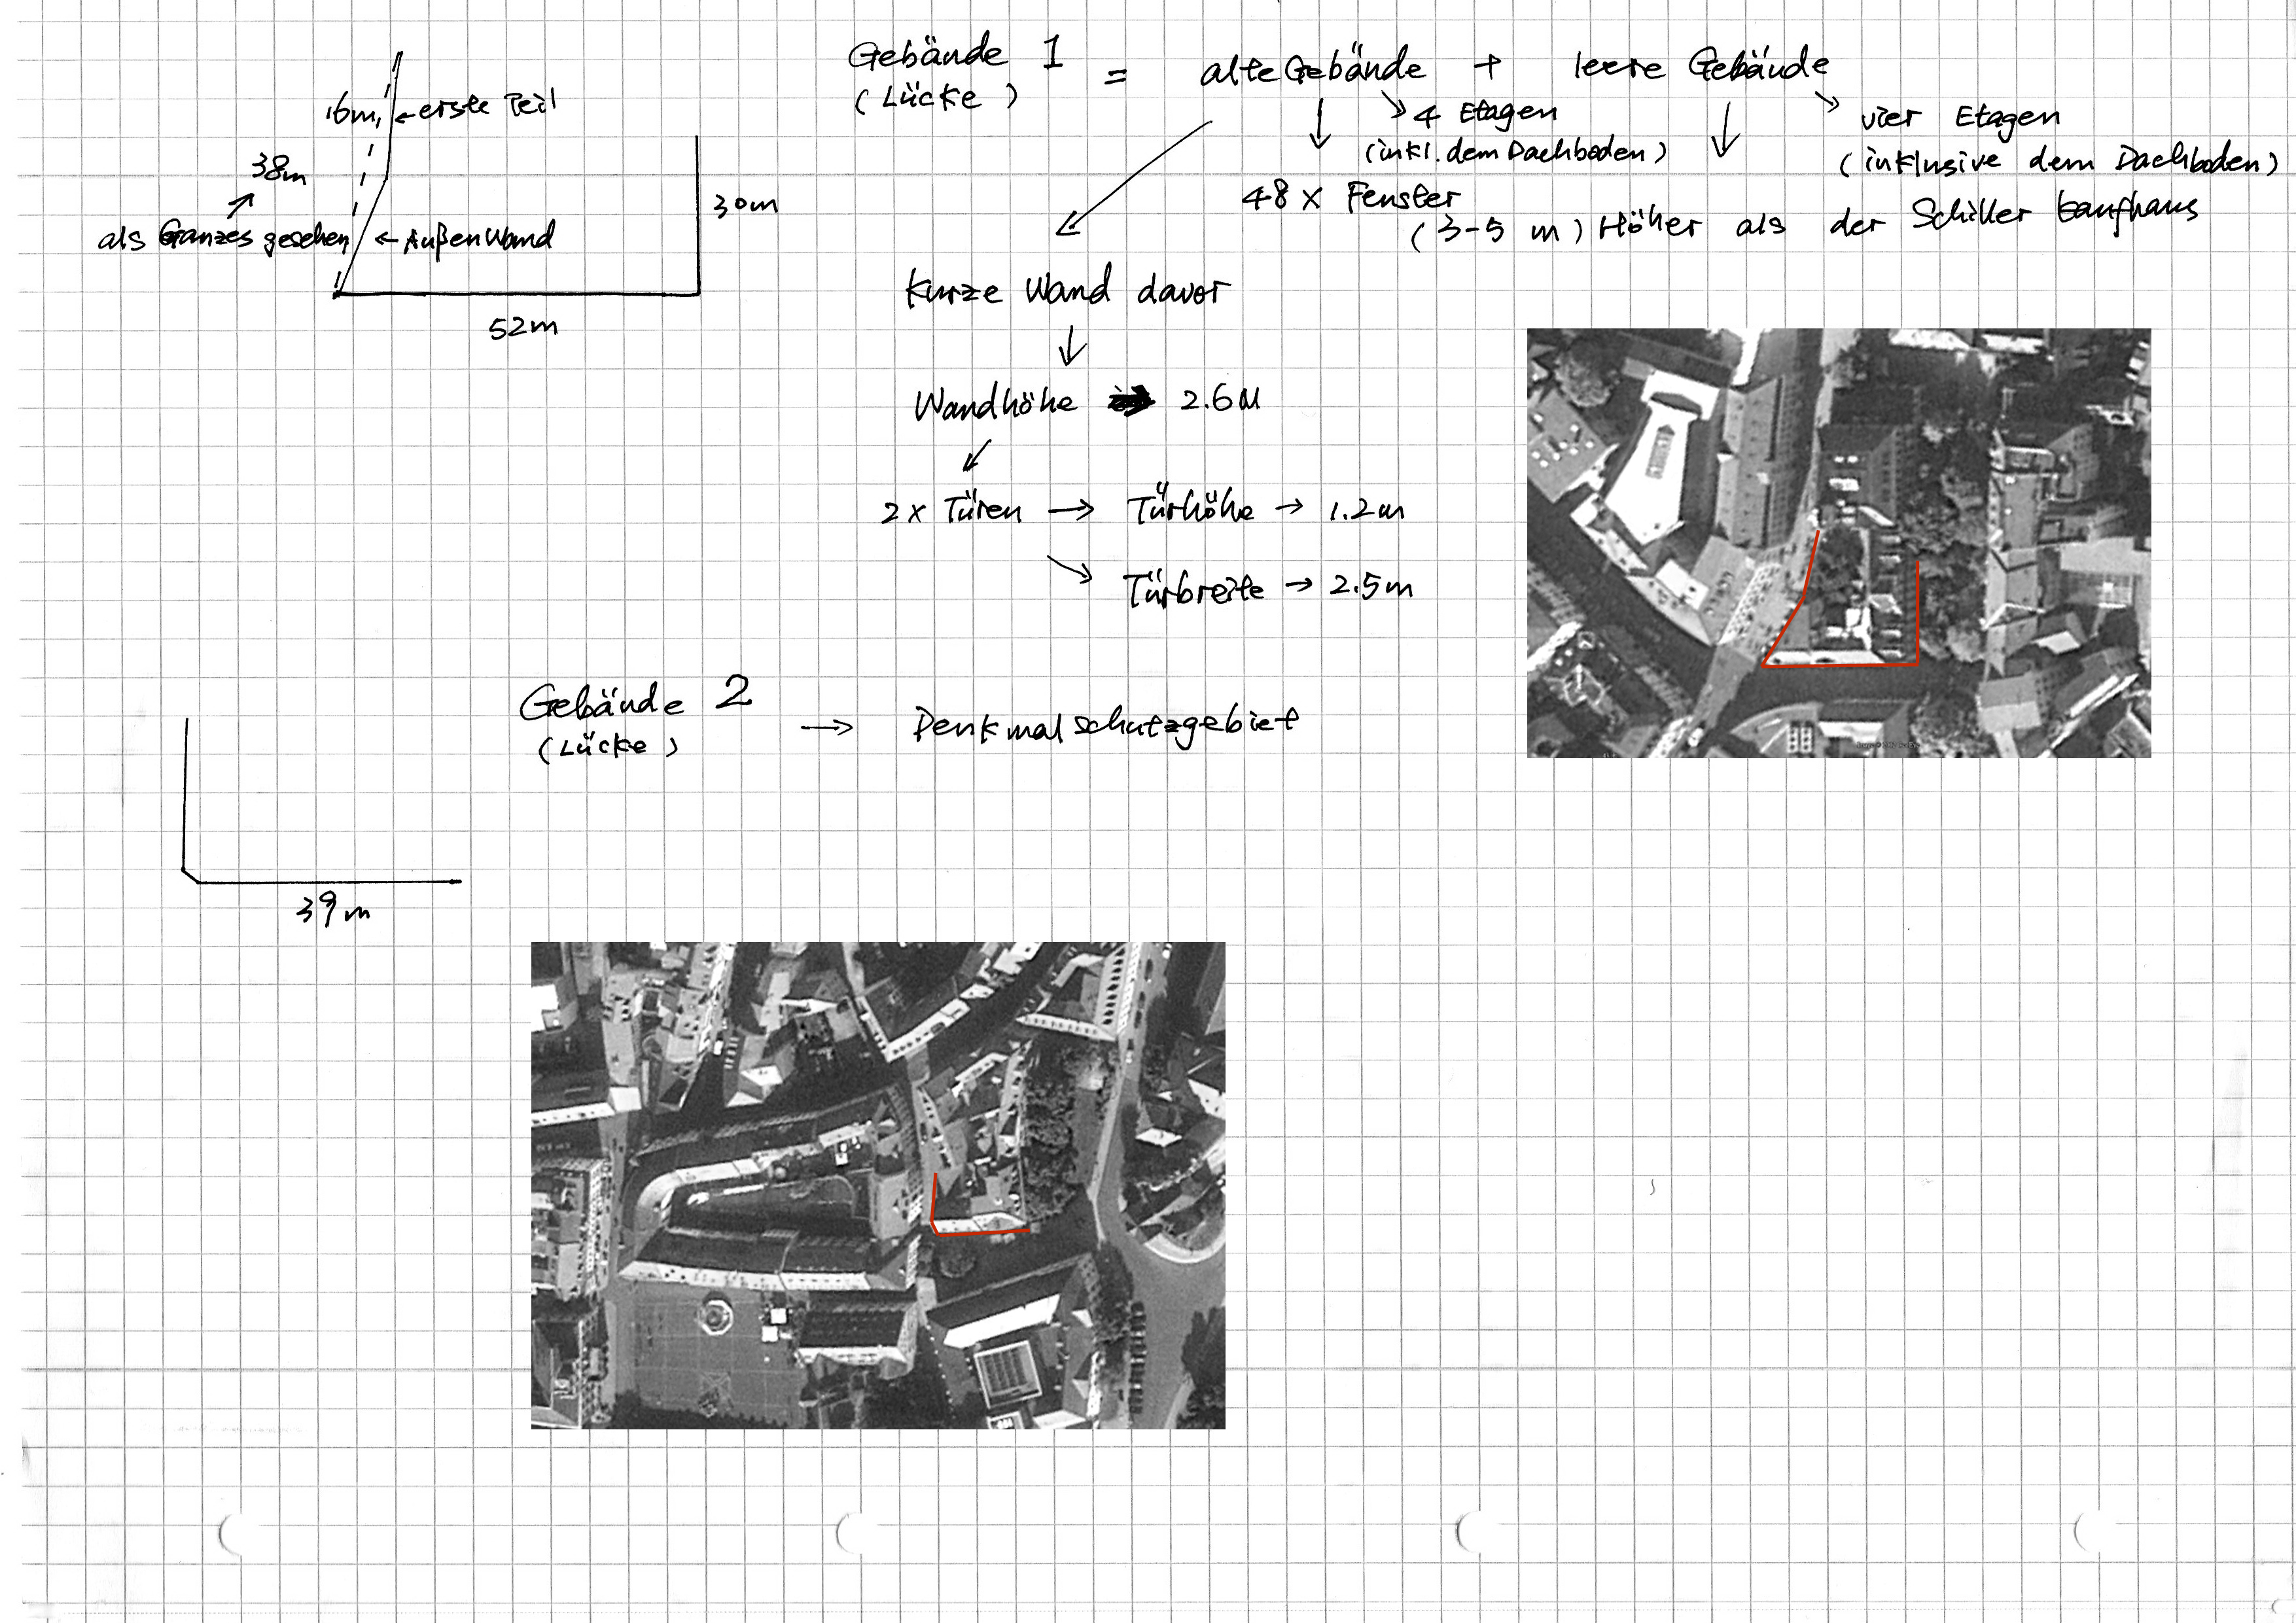 16m
← erste Teil
38m
als Ganzes gesehen
← Außenwand
30m
52m
Gebäude 1
(Lücke)
= alte Gebäude + leere Gebäude
4 Etagen
(inkl. dem Dachboden)
vier Etagen
(inklusive dem Dachboden)
48 x Fenster
(3-5 m) Höher als der Schiller Kaufhaus
Kurze Wand davor
Wandhöhe 2.6M
2 x Türen → Türhöhe → 1.2m
Türbreite → 2.5m
Gebäude 2
(Lücke)
→ Denkmalschutzgebiet
39m